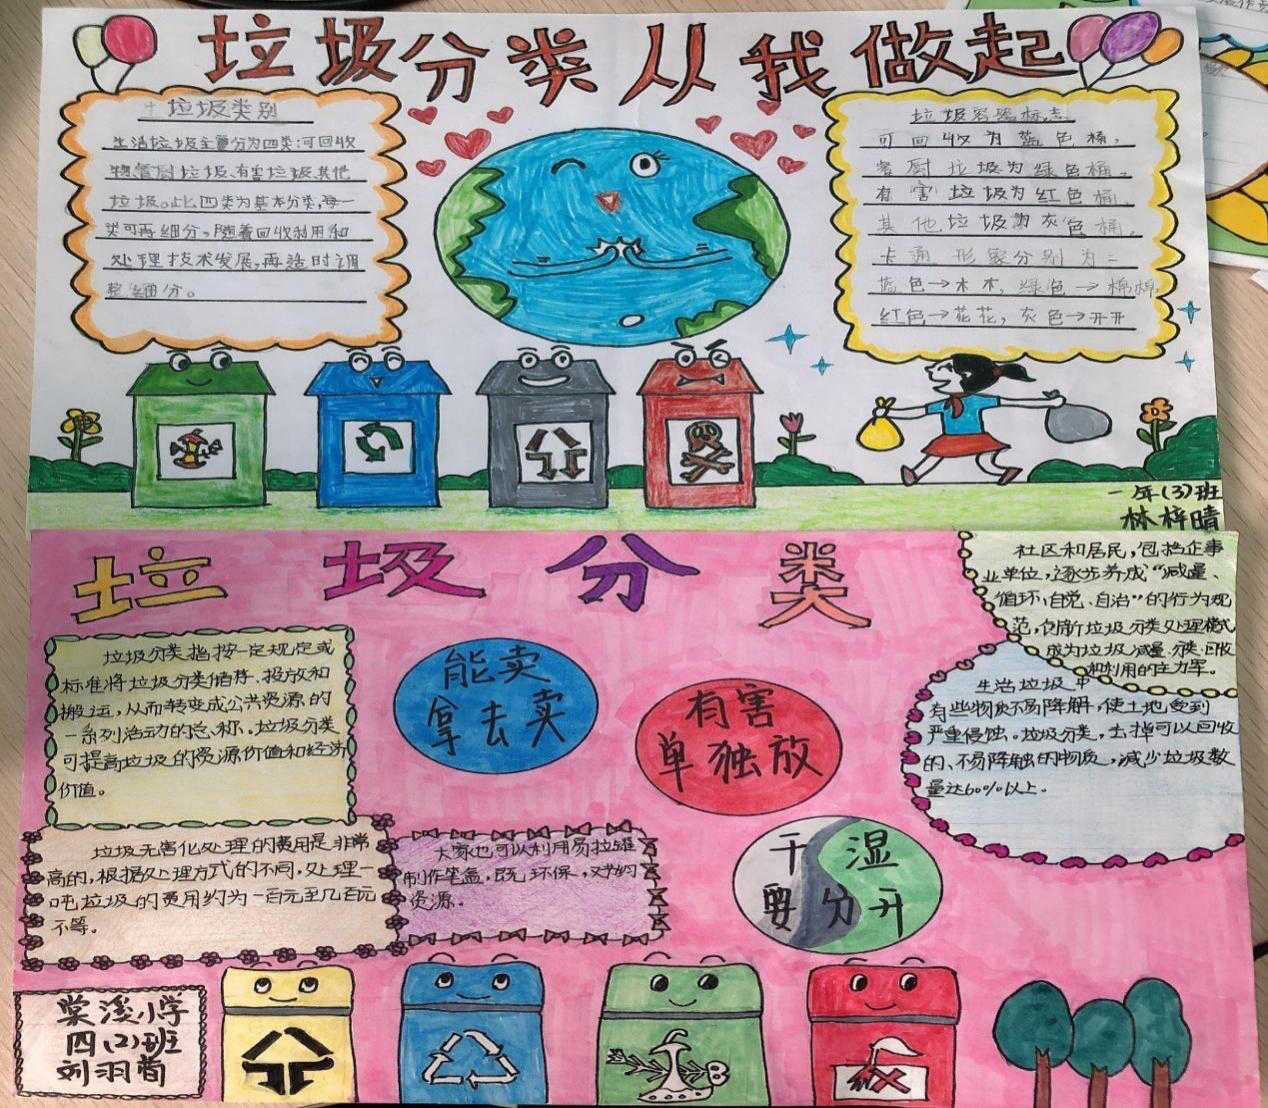 垃圾分类从我做起
垃圾类别
生活垃圾主要分为四类:可回收
物、餐厨垃圾、有害垃圾、其他
垃圾。此四类为基本分类,每一
类可再细分。随着回收利用和
处理技术发展,再适时调
整细分。
垃圾容器标志
可回收为蓝色桶,
餐厨垃圾为绿色桶。
有害垃圾为红色桶
其他垃圾为灰色桶。
卡通形象分别为:
蓝色→木木,绿色→棉棉,
红色→花花,灰色→开开
一年(3)班
林梓晴
垃圾分类
垃圾分类指按一定规定或
标准将垃圾分类储存、投放和
搬运,从而转变成公共资源的
一系列活动的总称。垃圾分类
可提高垃圾的资源价值和经济
价值。
能卖
拿去卖
有害
单独放
干湿
要分开
社区和居民,包括企事
业单位,逐步养成“减量、
循环、自觉、自治”的行为规
范,创新垃圾分类处理模式
成为垃圾减量、分类、回收
和利用的主力军。
生活垃圾中
有些物质不易降解,使土地受到
严重侵蚀。垃圾分类,去掉可以回收
的、不易降解的物质,减少垃圾数
量达60%以上。
垃圾无害化处理的费用是非常
高的,根据处理方式的不同,处理一
吨垃圾的费用约为一百元至几百元
不等。
大家也可以利用易拉罐
制作笔盒,既环保,又节约
资源。
棠溪小学
四(2)班
刘羽